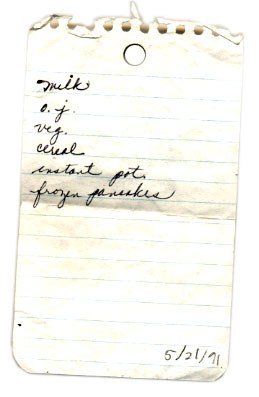 milk
o. j.
veg.
cereal
instant pot.
frozen pancakes
5/21/91